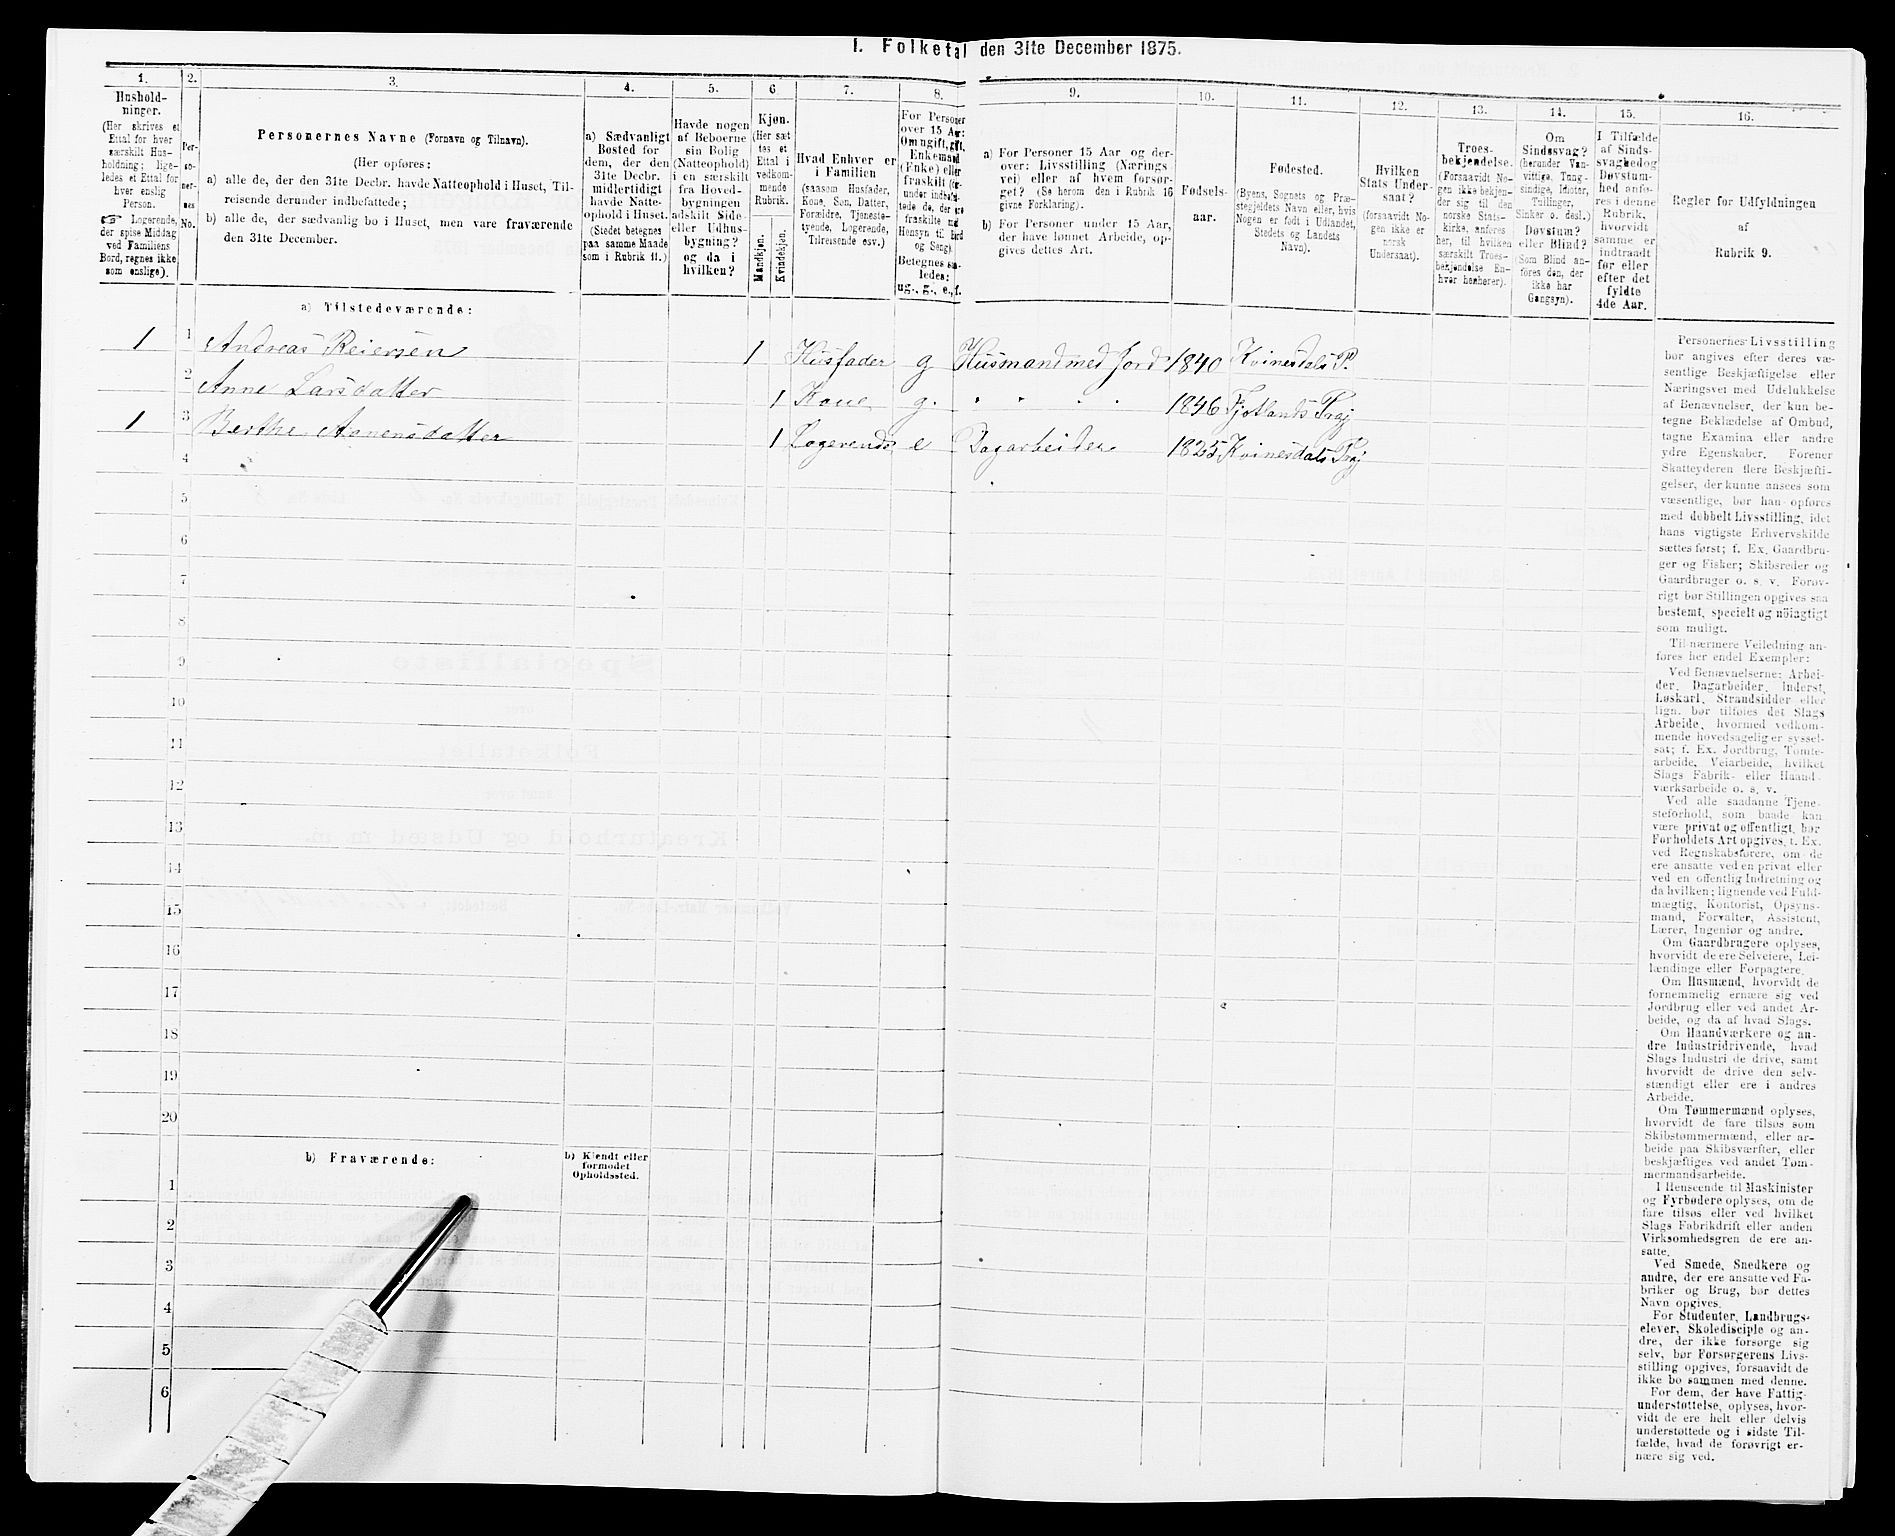 I. Folketal den 31te December 1875.
1.
Hushold-
ninger.
(Her skrives et
Ettal for hver
særskilt Hus-
holdning; lige-
ledes et Ettal for
hver enslig
Person.
☞ Logerende,
der spise Middag
ved Familiens
Bord, regnes ikke
som enslige).
2.
Per-
so-
ner-
nes
No.
3.
Personernes Navne (Fornavn og Tilnavn).
(Her opføres:
a) alle de, der den 31te Decbr. havde Natteophold i Huset, Til-
reisende derunder indbefattede;
b) alle de, der sædvanlig bo i Huset, men vare fraværende
den 31te December.
4.
a) Sædvanligt
Bosted for
dem, der den
31te Decbr.
midlertidigt
havde Natte-
ophold i Huset.
(Stedet betegnes
paa samme Maade
som i Rubrik 11.)
5.
Havde nogen
af Beboerne
sin Bolig
(Natteophold)
i en særskilt
fra Hoved-
bygningen
adskilt Side-
eller Udhus-
bygning?
og da i
hvilken?
6
Kjøn.
(Her sæt
tes et
Ettal i
vedkom-
mende
Rubrik.
Mandkjøn.
Kvindekjøn.
7.
Hvad Enhver er
i Familien
(saasom Husfader,
Kone, Søn, Datter,
Forældre, Tjeneste-
tyende, Logerende,
Tilreisende osv.)
8.
For Personer
over 15 Aar:
Om ugift, gift,
Enkemand
(Enke) eller
fraskilt
Betegnes saa-
ledes:
ug., g., e., f.
9.
a) For Personer 15 Aar og der-
over: Livsstilling (Nærings-
vei) eller af hvem forsør-
get? (Se herom den i Rubrik 16
givne Forklaring).
b) For Personer under 15 Aar,
der have lønnet Arbeide, op-
gives dettes Art.
10.
Fødsels-
aar.
11.
Fødested.
(Byens, Sognets og Præ-
stegjeldets Navn eller, hvis
Nogen er født i Udlandet,
Stedets og Landets
Navn).
12.
Hvilken
Stats Under-
saat?
(forsaavidt No-
gen ikke er
norsk
Undersaat).
13.
Troes-
bekjendelse.
(Forsaavidt No-
gen ikke bekjen-
der sig til den
norske Stats-
kirke, anføres
her, til hvilken
særskilt Troes-
bekjendelse En-
hver henhører).
14.
Om
Sindssvag?
(herunder Van-
vittige, Tung-
sindige, Idioter,
Tullinger,
Sinker o. desl.)
Døvstum?
eller Blind?
(Som Blind an-
føres den, der
ikke har
Gangsyn).
15.
I Tilfælde
af Sinds-
svaghed og
Døvstum-
hed anfø-
res i denne
Rubrik,
hvorvidt
samme er
indtraadt
før eller
efter det
fyldte
4de Aar.
16.
Regler for Udfyldningen
af
Rubrik 9.
a) Tilstedeværende:
1 1 Andreas Reiersen 1 Husfader g Husmand med Jord 1840 Kvinesdals P.
2 Anne Larsdatter 1 Kone g. " " " " 1846 Fjotlands Præj
1 3 Berthe Asnensdatter 1 Logerende e Dagarbeider 1825 Kvinesdals Præj
4
5
6
7
8
9
10
11
12
13
14
15
16
17
18
19
20
b) Fraværende:
b) Kjendt eller
formodet
Opholdssted.
1
2
3
4
5
6
Personernes Livsstilling
bør angives efter deres væ-
sentlige Beskjæftigelse eller
Næringsvei med Udelukkelse
af Benævnelser, der kun be-
tegne Beklædelse af Ombud,
tagne Examina eller andre
ydre Egenskaber. Forener
Skatteyderen flere Beskjæfti-
gelser, der kunne ansees som
væsentlige, bør han opføres
med dobbelt Livsstilling, idet
hans vigtigste Erhvervskilde
sættes først; f. Ex. Gaardbru-
ger og Fisker; Skibsreder og
Gaardbruger o. s. v. Forøv-
rigt bør Stillingen opgives saa
bestemt, specielt og nöiagtigt
som muligt.
Til nærmere Veiledning an-
føres her endel Exempler:
Ved Benævnelserne: Arbei-
der, Dagarbeider, Inderst,
Løskarl, Strandsidder eller
lign. bør tilføies det Slags
Arbeide, hvormed vedkom-
mende hovedsagelig er syssel-
sat; f. Ex. Jordbrug, Tomte-
arbeide, Veiarbeide, hvilket
Slags Fabrik- eller Haand-
værksarbeide o. s. v.
Ved alle saadanne Tjene-
steforhold, som baade kan
være privat og offentligt, bør
Forholdets Art opgives, t. Ex.
ved Regnskabsførere, om de
ere ansatte ved en privat eller
ved en offentlig Indretning og
da hvilken; lignende ved Fuld-
mægtig, Kontorist, Opsyns-
mand, Forvalter, Assistent,
Lærer, Ingeniør og andre.
Om Gaardbrugere oplyses,
hvorvidt de ere Selveiere, Lei-
lændinge eller Forpagtere.
Om Husmænd, hvorvidt de
fornemmelig ernære sig ved
Jordbrug eller ved andet Ar-
beide, og da af hvad Slags.
Om Haandværkere og an-
dre Industridrivende, hvad
Slags Industri de drive, samt
hvorvidt de drive den selv-
stændigt eller ere i andres
Arbeide.
Om Tømmermænd oplyses,
hvorvidt de fare tilsøs som
Skibstømmermænd, eller ar-
beide paa Skibsværfter, eller
beskjæftiges ved andet Tøm-
mermandsarbeide.
I Henseende til Maskinister
og Fyrbødere oplyses, om de
fare tilsøs eller ved hvilket
Slags Fabrikdrift eller anden
Virksomhedsgren de ere an-
satte.
Ved Smede, Snedkere og
andre, der ere ansatte ved Fa-
briker og Brug, bør dettes
Navn opgives.
For Studenter, Landbrugs-
elever, Skoledisciple og an-
dre, der ikke forsørge sig
selv, bør Forsørgerens Livs-
stilling opgives, forsaavidt de
ikke bo sammen med denne.
For dem, der have Fattig-
understøttelse, oplyses, hvor-
vidt de ere helt eller delvis
understøttede og i sidste Til-
fælde, hvad de forøvrigt er-
nære sig ved.